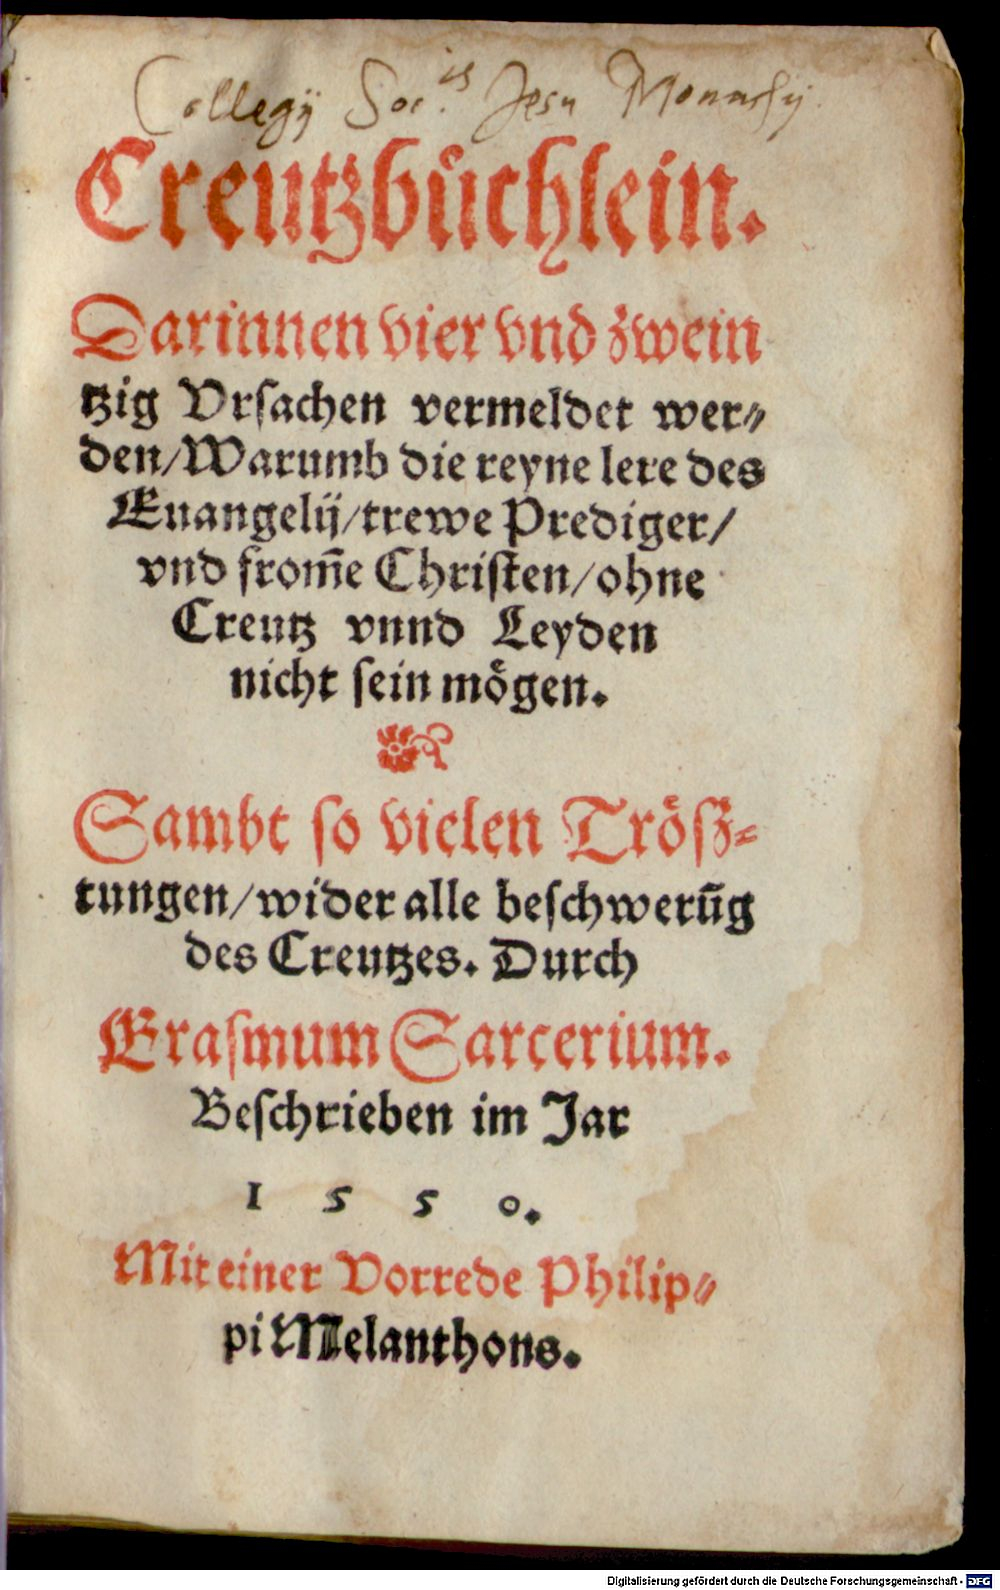 Collegij Soc.is Jesu Monachij.
Creutzbuͤchlein.
Darinnen vier vnd zwein
tzig Vrſachen vermeldet wer⸗
den/Warumb die reyne lere des
Euangelij/trewe Prediger/
vnd from̃e Chriſten/ohne
Creutz vnnd Leyden
nicht ſein moͤgen.
Sambt ſo vielen Troͤſz⸗
tungen/wider alle beſchwerũg
des Creutzes. Durch
Eraſmum Sarcerium.
Beſchrieben im Jar
1 5 5 0.
Mit einer Vorrede Philip⸗
pi Melanthons.
Digitalisierung gefördert durch die Deutsche Forschungsgemeinschaft - DFG